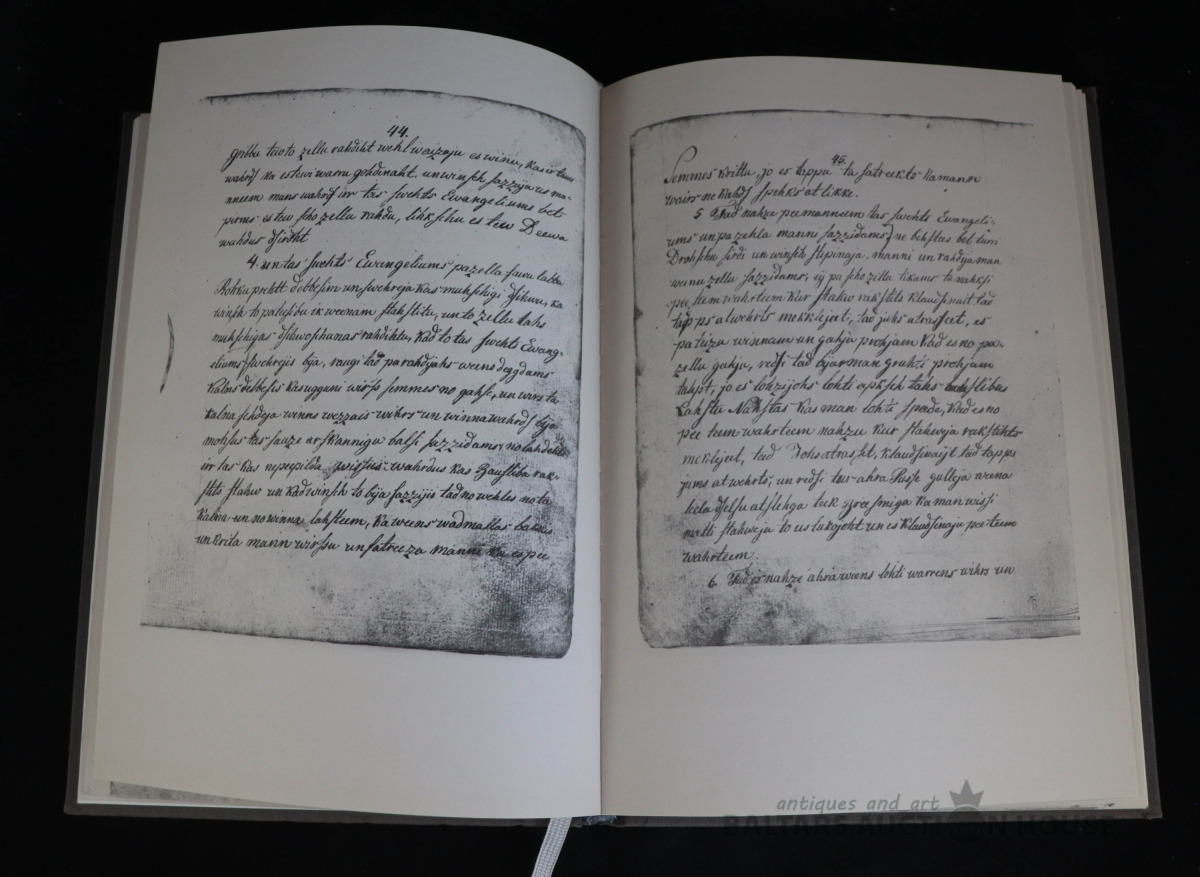 44.
gribbu tewi to zellu rahdiht wehl waizaju es winu, kas ir taws
wahrds ka es tewi warru gohdinaht. un winsch sazzija us ma-
neem mans wahrds ir tas swehts Ewangeliums bet
pirms es tew scho zellu rahdu, lihkschu es tew Deewa
wahdus dsirdeht
4. un tas swehts Ewangeliums pazella sawu labbu
Rohku prehtt debbesim un swehreja kas muhschigi dsihwu, ka
winsch to palihdsu ik weenam stahstitu, un to zellu tahs
muhschigas dsihwoschanas rahdihtu, kad to tas swehts Ewang-
eliums swehrejis bija, raugi tad parahdijahs weens degdams
kalns debbesis kas ugguni wirss semmes no gahse, un wirs ta
kalna sehdeja weens wezzais wihrs un winna wahrds bija
mohsus tas sauze ar skannigu balsi sazzidams, nolahdehts
ir tas kas nepepilda wissus wahrdus kas Bausliba rak-
stits stahw un kad winsch to bija sazzijis tad no wehles no ta
kalna un no winna lahsteem, ka weens wadmallas bakkis
un krita mann wirsu un satreeza manni ka es pee
45.
Semmes krittu, jo es tappu ta satreekts ka mann
wairs ne kahds spehks at likke.
5 Tad nahze pee manneem tas swehts Ewangeli-
ums un pazehla manni sazzidams, ne bihstas bet turri
Drohschu sirdi un winsch stiprinaja, manni un rahdija man
weenu zellu sazzidams, ej pa scho zellu tikkam tu nahksi
pee teem wahrteem kur stahw rakstits klaudsinait tad
tapps atwehrts mekklejeet, tad juhs atrasseet, es
pateizu winnam un gahja prohjam kad es no pa-
zellu gahju, redsi tad bija man gruhti prohjam
tahpt, jo es lohzijohs lohti apksch tahs bauslibas
Lahstu Nahstas kas man lohti speeda, kad es no
pee teem wahrteem nahzu kur stahweja rakstihts
meklejeet, tad Johs atrasst, klaudsinajt tad tapps
jums at wehrts, un redsi tur ahra Pusse gulleja weena
leela dselsu at slehga tik breesmiga ka man wissi
matti stahweja to us lukojoht un es klaudsinaju pee teem
wahrteem.
6. Tad es nahze ahra weens lohti warrens wihrs un
antiques and art
BALTARS AUCTION HOUSE